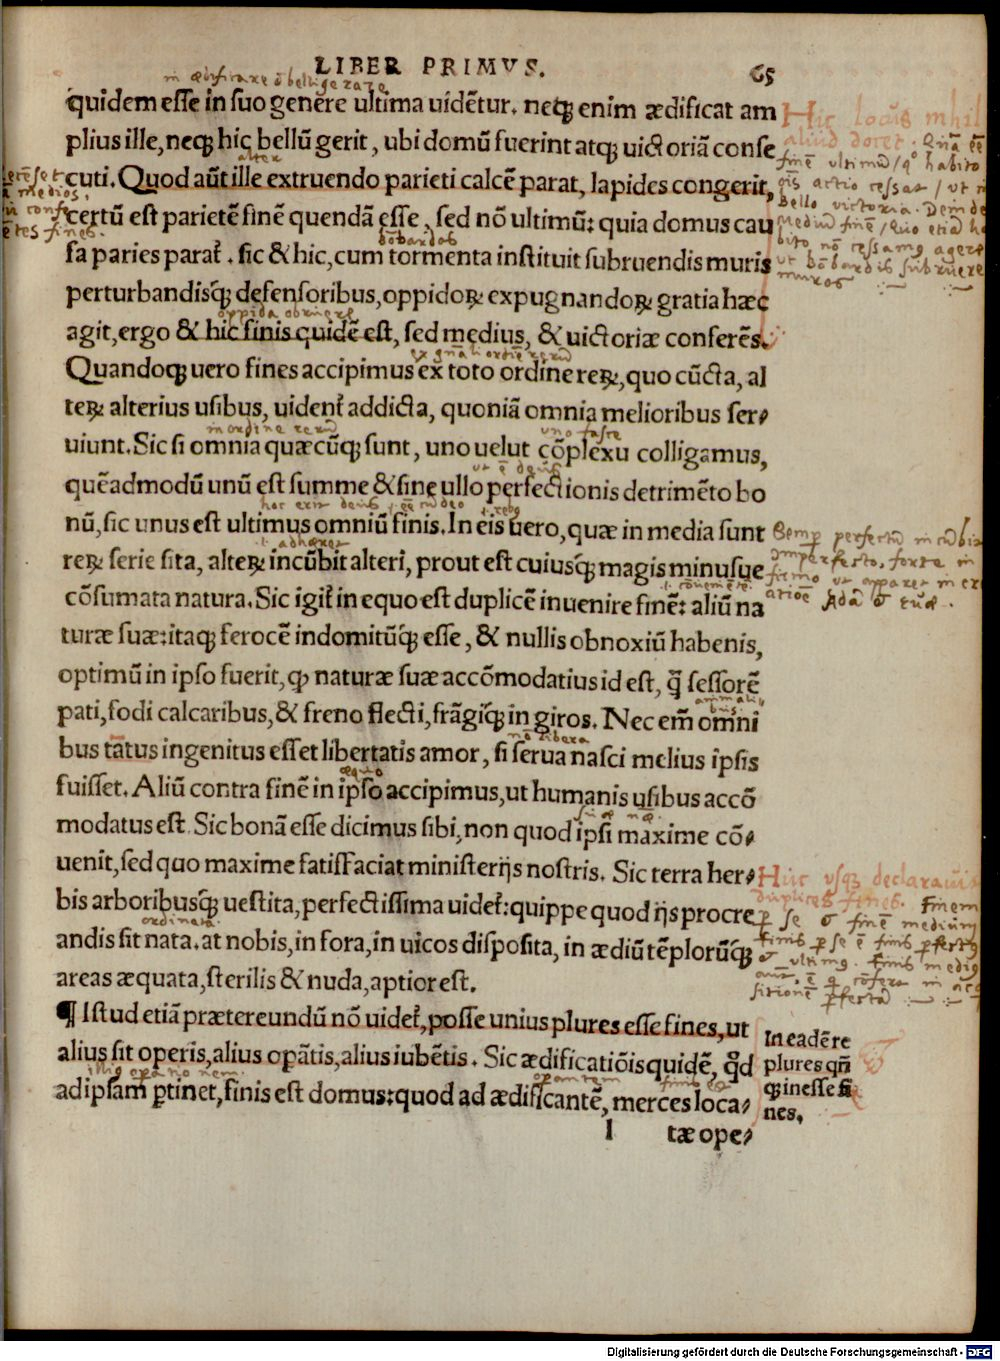 LIBER PRIMVS. 65
in ædificare & belligerare
quidem esse in suo genere ultima uidẽtur. neqꝫ enim ædificat am
plius ille, neqꝫ hic bellũ gerit, ubi domũ fuerint atqꝫ uictoriã conse
alter
cuti. Quod aũt ille extruendo parieti calcẽ parat, lapides congerit,
certũ est parietẽ finẽ quendã esse, sed nõ ultimũ: quia domus cau
bõbardas
sa paries parat̃. sic & hic, cum tormenta instituit subruendis muris
perturbandisq́ꝫ defensoribus, oppidoꝝ expugnandoꝝ gratia hæc
oppida obruere
agit, ergo & hic finis quidẽ est, sed medius, & uictoriæ conferẽs.
Quandoqꝫ uero fines accipimus ex toto ordine reꝝ, quo cũcta, al
teꝝ alterius usibus, uident̃ addicta, quoniã omnia melioribus ser⸗
in ordine rerũ uno fasce
uiunt. Sic si omnia quæcũqꝫ sunt, uno uelut cõplexu colligamus,
ut ẽ deus
quẽadmodũ unũ est summe & sine ullo perfectionis detrimẽto bo
nũ, sic unus est ultimus omniũ finis. In eis uero, quæ in media sunt
.i. adhæret
reꝝ serie sita, alteꝝ incũbit alteri, prout est cuiusq́ꝫ magis minusue
cõsumata natura. Sic igit̃ in equo est duplicẽ inuenire finẽ: aliũ na
turæ suæ: itaqꝫ ferocẽ indomitũq́ꝫ esse, & nullis obnoxiũ habenis,
optimũ in ipso fuerit, ꝙ naturæ suæ accõmodatius id est, q̃ sessorẽ
animali⸗
bus
pati, fodi calcaribus, & freno flecti, frãgiq́ꝫ in giros. Nec em̃ omni
nõ libera
bus tãtus ingenitus esset libertatis amor, si serua nasci melius ipsis
equo
fuisset. Aliũ contra finẽ in ipso accipimus, ut humanis usibus accõ
modatus est. Sic bonã esse dicimus sibi, non quod ipsi maxime cõ⸗
uenit, sed quo maxime satisfaciat ministerijs nostris. Sic terra her⸗
bis arboribusq́ꝫ uestita, perfectissima uidet̃: quippe quod ijs procre
ordinata
andis sit nata. at nobis, in fora, in uicos disposita, in ædiũ tẽplorũq́ꝫ
areas æquata, sterilis & nuda, aptior est.
¶ Istud etiã prætereundũ nõ uidet̃, posse unius plures esse fines, ut
alius sit operis, alius opãtis, alius iubẽtis. Sic ædificatiõis quidẽ, q̃d
ad ipsam ꝑtinet, finis est domus: quod ad ædificantẽ, merces loca⸗
I tæ ope⸗
Hic locus nihil
aliud docet.
finẽ ultimũ
Bello victoria.
muros
Semꝑ perfectũ
imperfecto. forte in
Huc usqꝫ declarauit
duplices fines. Finem
ꝑ se & finẽ medium
In eadẽ re
plures qñ
qꝫ inesse fi
nes.